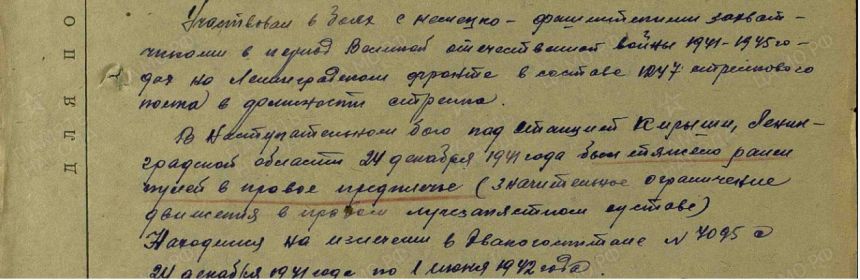 Участвовал в боях с немецко-фашистскими захват-
чиками в период Великой отечественной войны 1941-1945 го-
дах на Ленинградском фронте в составе 1247 стрелкового
полка в должности стрелка.
В наступательном бою под станцией Кириши, Ленин-
градской области 24 декабря 1941 года был тяжело ранен
пулей в правое предплечье (значительное ограничение
движения в правом лучезапястном суставе)
Находился на излечении в эвакогоспитале N 7095 с
24 декабря 1941 года по 1 июня 1942 года.
ДЛЯ ПО